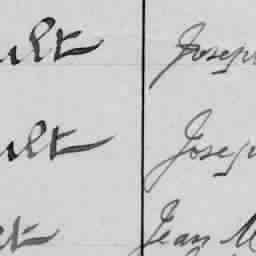 ult Joseph
ult Joseph
et Jean M